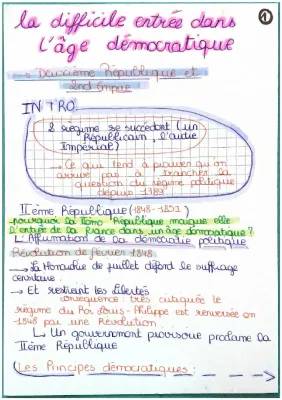 la difficile entrée dans
l'âge démocratique
1
→ Deuxième République et
2nd Empire
INTRO
2 régime se succèdent (un
Républicain, l'autre
Impérial)
→ Ce qui tend à prouver qu'on
arrive pas à trancher la
question du régime politique
depuis 1789
IIème République (1848-1852)
pourquoi la IIème République marque elle
l'entrée de la France dans un âge démocratique ?
L'Affirmation de la démocratie politique
Révolution de février 1848
→ La Monarchie de juillet défend le suffrage
censitaire.
→ Et restreint les libertés
conséquence : très critiquée le
régime du Roi Louis-Philippe est renversée en
1848 par une Révolution
↳ Un gouvernement provisoire proclame la
IIème République
Les Principes démocratiques :